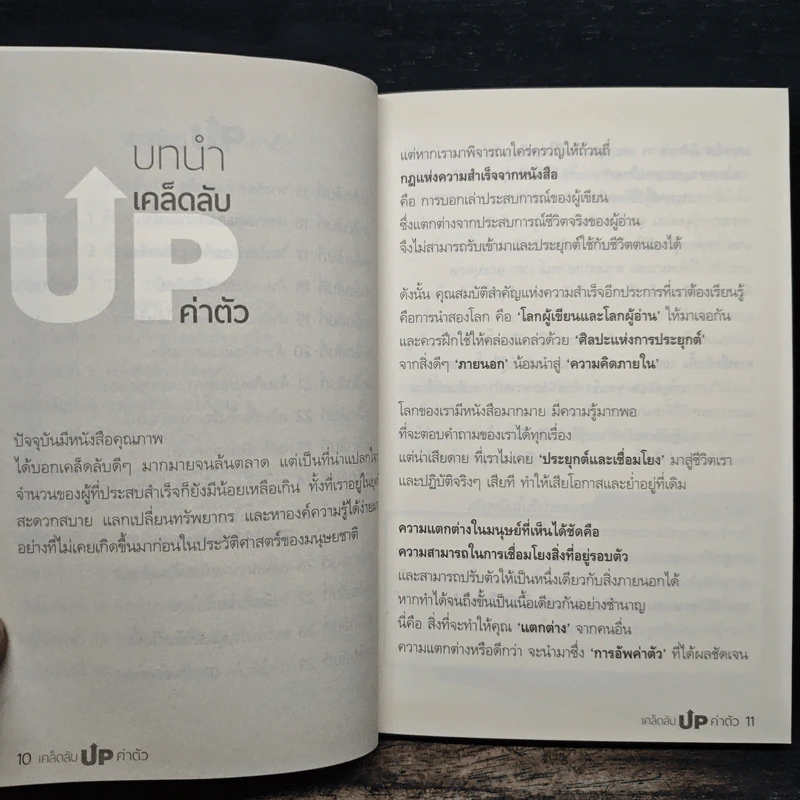 บทนำ
เคล็ดลับ
UP
ค่าตัว
ปัจจุบันมีหนังสือคุณภาพ
ได้บอกเคล็ดลับดีๆ มากมายจนล้นตลาด แต่เป็นที่น่าแปลกใจ
จำนวนของผู้ที่ประสบสำเร็จก็ยังมีน้อยเหลือเกิน ทั้งที่เราอยู่ในยุค
สะดวกสบาย แลกเปลี่ยนทรัพยากร และหาองค์ความรู้ได้ง่ายมาก
อย่างที่ไม่เคยเกิดขึ้นมาก่อนในประวัติศาสตร์ของมนุษยชาติ
10 เคล็ดลับ UP ค่าตัว
แต่หากเรามาพิจารณาใคร่ครวญให้ถ้วนถี่
กฎแห่งความสำเร็จจากหนังสือ
คือ การบอกเล่าประสบการณ์ของผู้เขียน
ซึ่งแตกต่างจากประสบการณ์ชีวิตจริงของผู้อ่าน
จึงไม่สามารถรับเข้ามาและประยุกต์ใช้กับชีวิตตนเองได้
ดังนั้น คุณสมบัติสำคัญแห่งความสำเร็จอีกประการที่เราต้องเรียนรู้
คือการนำสองโลก คือ 'โลกผู้เขียนและโลกผู้อ่าน' ให้มาเจอกัน
และควรฝึกใช้ให้คล่องแคล่วด้วย 'ศิลปะแห่งการประยุกต์'
จากสิ่งดีๆ 'ภายนอก' น้อมนำสู่ 'ความคิดภายใน'
โลกของเรามีหนังสือมากมาย มีความรู้มากพอ
ที่จะตอบคำถามของเราได้ทุกเรื่อง
แต่น่าเสียดาย ที่เราไม่เคย 'ประยุกต์และเชื่อมโยง' มาสู่ชีวิตเรา
และปฏิบัติจริงๆ เสียที ทำให้เสียโอกาสและย่ำอยู่ที่เดิม
ความแตกต่างในมนุษย์ที่เห็นได้ชัดคือ
ความสามารถในการเชื่อมโยงสิ่งที่อยู่รอบตัว
และสามารถปรับตัวให้เป็นหนึ่งเดียวกับสิ่งภายนอกได้
หากทำได้จนถึงขั้นเป็นเนื้อเดียวกันอย่างชำนาญ
นี่คือ สิ่งที่จะทำให้คุณ 'แตกต่าง' จากคนอื่น
ความแตกต่างหรือดีกว่า จะนำมาซึ่ง 'การอัพค่าตัว' ที่ได้ผลชัดเจน
เคล็ดลับ UP ค่าตัว 11